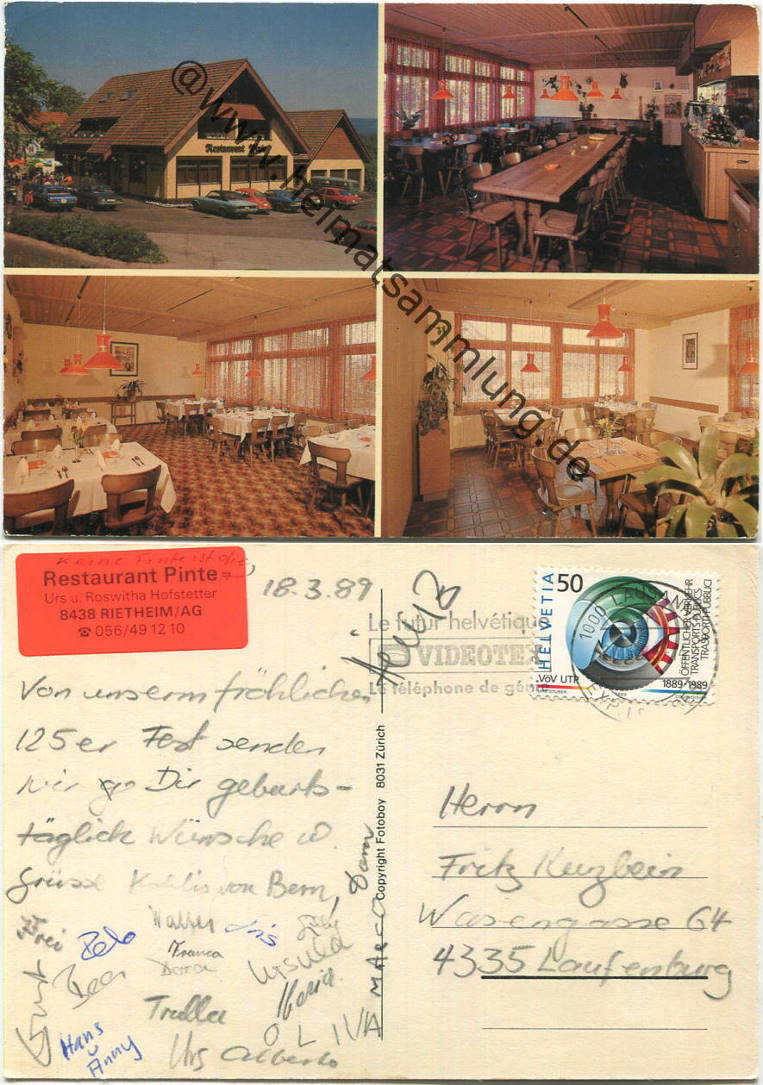 Restaurant Pinte
@www.heimatsammlung.de
Keine Pinte ist die,
Restaurant Pinte
Urs u. Roswitha Hofstetter
8438 RIETHEIM/AG
☎ 056/49 12 10
18.3.89
Le futur helvétique
VIDEOTEX
Le téléphone de génie
1000 LAUSANNE
EXPEDITION
HELVETIA
50
VöV UTP
1889-1989
ÖFFENTLICHER VERKEHR
TRANSPORTS PUBLICS
TRASPORTI PUBBLICI
Von unserm fröhlichen
125er Fest senden
wir Dir geburts-
täglich Wünsche u.
Grüsse von Bern,
Frei
Bebo
Walter
Iris
Franca
Ursula
Maria
Beer
Trulla
OLIVIA
Hans
u
Anny
Urs Alberto
Marco
Copyright Fotoboy 8031 Zürich
Herrn
Fritz Kunzbein
Wasengasse 64
4335 Laufenburg